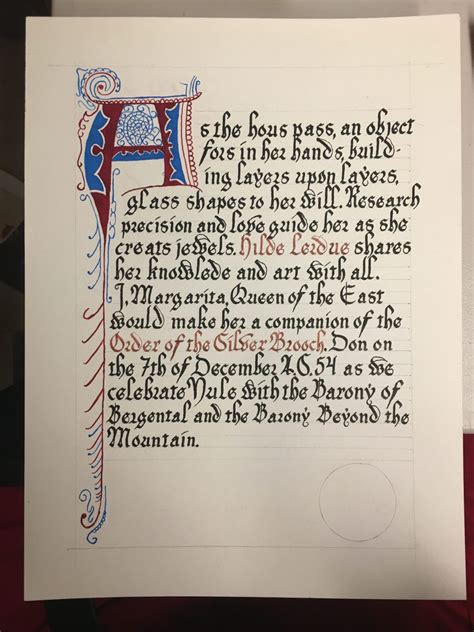 As the hous pass, an object
fors in her hands, build-
ing layers upon layers,
glass shapes to her will. Research
precision and love guide her as she
creats jewels. Hilde Lerdue shares
her knowlede and art with all.
I, Margarita, Queen of the East
would make her a companion of the
Order of the Silver Brooch. Don on
the 7th of December A.S. 54 as we
celebrate Yule with the Barony of
Bergental and the Barony Beyond the
Mountain.